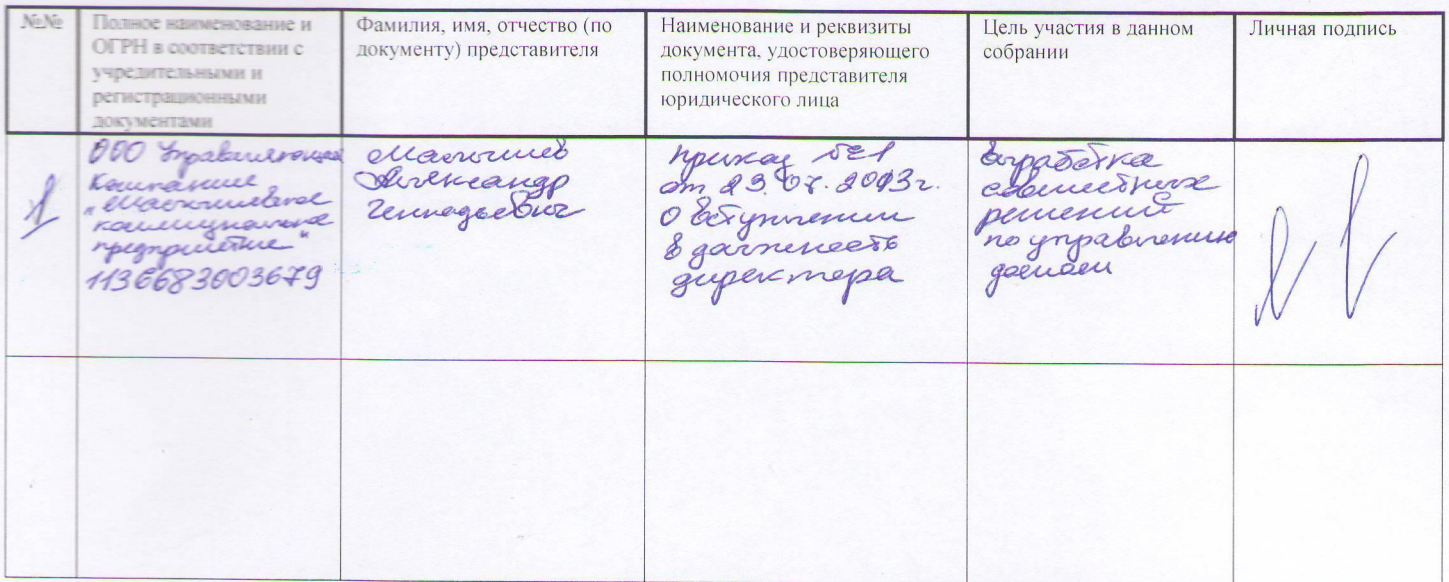 №№
Полное наименование и
ОГРН в соответствии с
учредительными и
регистрационными
документами
Фамилия, имя, отчество (по
документу) представителя
Наименование и реквизиты
документа, удостоверяющего
полномочия представителя
юридического лица
Цель участия в данном
собрании
Личная подпись
1
ООО Управляющая
Компания
коммунальное
предприятие"
1136683003679
Малышев
Александр
Геннадьевич
приказ №1
от 23.07.2013г.
О вступлении
в должность
директора
выработка
совместных
решений
по управлению
домом